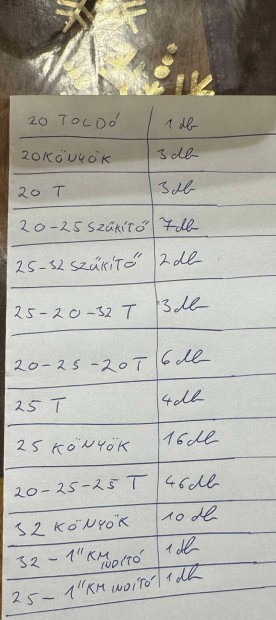 20 TOLDÓ 1 db
20 KÖNYÖK 3 db
20 T 3 db
20-25 SZŰKÍTŐ 7 db
25-32 SZŰKÍTŐ 2 db
25-20-32 T 3 db
20-25-20 T 6 db
25 T 4 db
25 KÖNYÖK 16 db
20-25-25 T 46 db
32 KÖNYÖK 10 db
32 - 1" KM INDÍTÓ 1 db
25 - 1" KM INDÍTÓ 1 db